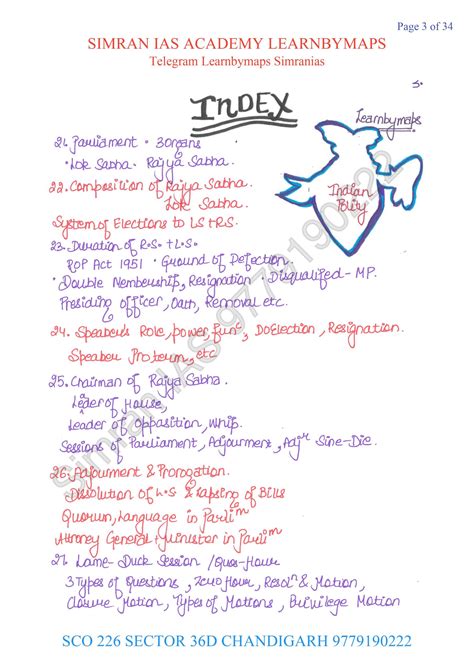 Page 3 of 34
SIMRAN IAS ACADEMY LEARNBYMAPS
Telegram Learnbymaps Simranias
INDEX
Learnbymaps
Indian
Polity
21. Parliament • 3 organs
• Lok Sabha • Rajya Sabha.
22. Composition of Rajya Sabha.
Lok Sabha.
System of Elections to LS & R.S.
23. Duration of R.S. & L.S.
ROP Act 1951 • Ground of Defection.
• Double Membership, Resignation • Disqualified - MP.
Presiding officer, Oath, Removal etc.
24. Speaker's Role, power, func, DoElection, Resignation.
Speaker Protem, etc
25. Chairman of Rajya Sabha.
Leader of House,
Leader of Opposition, Whip.
Sessions of Parliament, Adjourment, Adjr Sine-Die.
26. Adjourment & Prorogation.
Dissolution of L.S & Lapsing of Bills
Quorum, Language in Parlim
Attorney General & Minister in Parlim
27. Lame-Duck Session / Ques-Hour
3 Types of Questions, Zero Hour, Resoln & Motion,
Closure Motion, Types of Motions, Privilege Motion
Simran IAS 9779190222
SCO 226 SECTOR 36D CHANDIGARH 9779190222